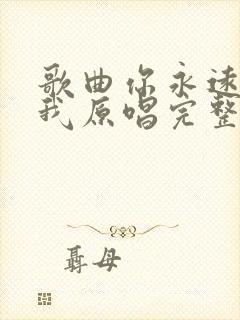 歌曲你永远
我原唱完整
聂母